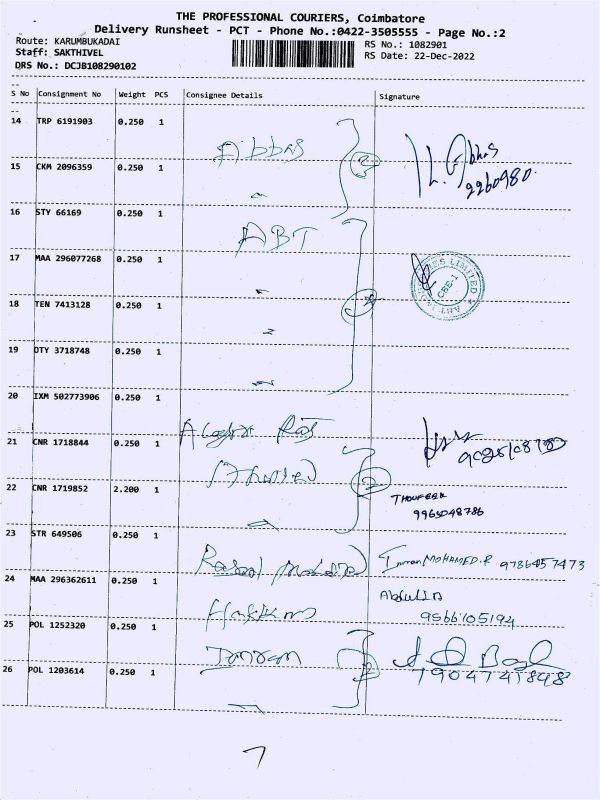 THE PROFESSIONAL COURIERS, Coimbatore
Delivery Runsheet - PCT - Phone No.:0422-3505555 - Page No.:2
Route: KARUMBUKADAI
RS No.: 1082901
Staff: SAKTHIVEL
RS Date: 22-Dec-2022
DRS No.: DCJB108290102
S No Consignment No Weight PCS Consignee Details Signature
14 TRP 6191903 0.250 1
Abbas
15 CKM 2096359 0.250 1
2260980
16 STY 66169 0.250 1
ABT
17 MAA 296077268 0.250 1
LIMITED
CBE-1
18 TEN 7413128 0.250 1
19 OTY 3718748 0.250 1
20 IXM 502773906 0.250 1
21 CNR 1718844 0.250 1
22 CNR 1719852 2.200 1
THOUFEEK
9965048786
23 STR 649506 0.250 1
Imran MOHAMED.R 9786457473
24 MAA 296362611 0.250 1
Abdulla
9566105194
25 POL 1252320 0.250 1
26 POL 1203614 0.250 1
7904741848
7